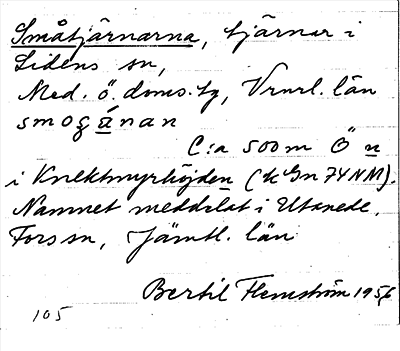 Småtjärnarna, tjärnar i
Lidens sn,
Med. ö. doms. tg, Vrnrl. län
smogànan
C:a 500 m Ö n
i Knektmyrhöjden (k Gn 74 NM).
Namnet meddelat i Utanede,
Fors sn, Jämtl. län
Bertil Flemström 1956
105